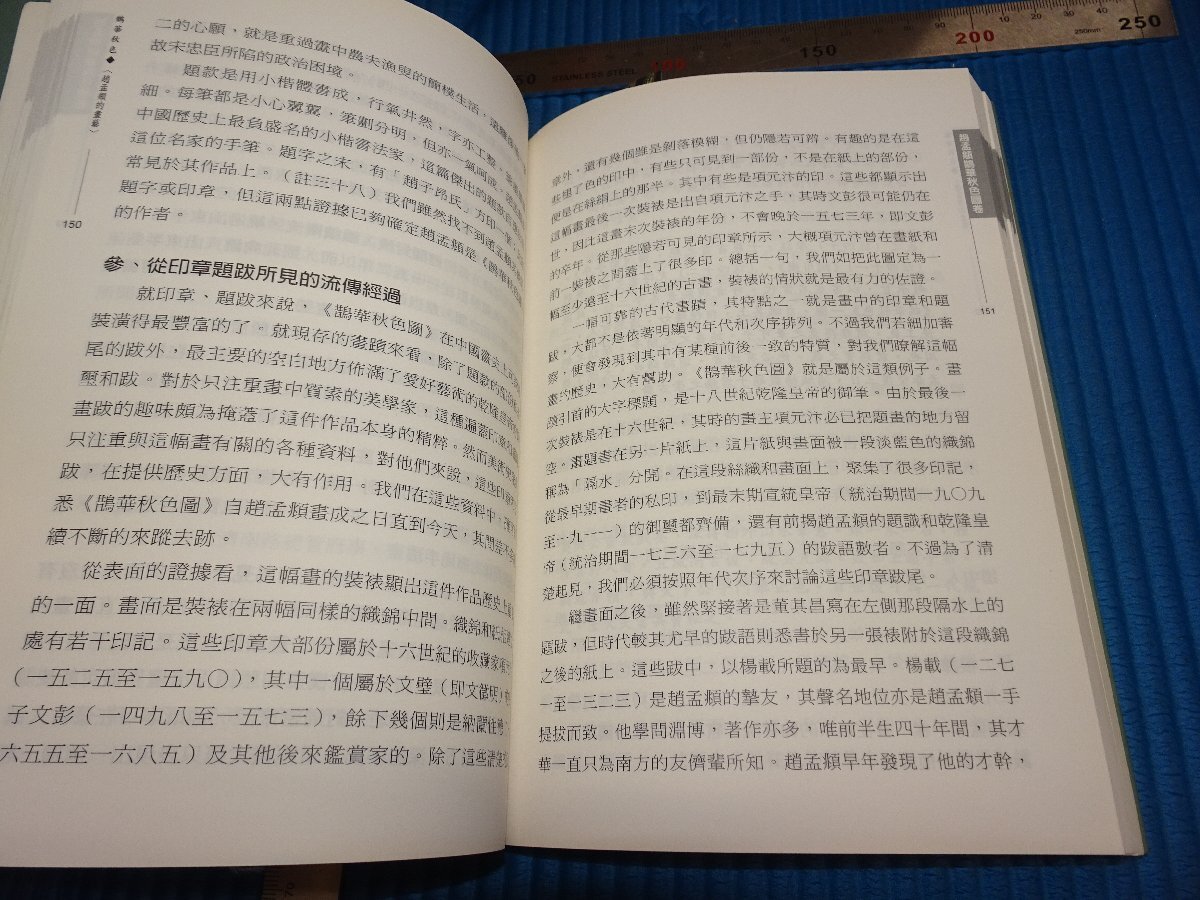 鵲華秋色◆〈趙孟頫的畫藝〉
150
二的心願,就是重過畫中農夫漁叟的簡樸生活,
故宋忠臣所陷的政治困境。
題款是用小楷體書成,行氣井然,字亦工整,
細。每筆都是小心翼翼,筆劃分明,但亦一氣呵成,
中國歷史上最負盛名的小楷書法家,這篇傑出的
這位名家的手筆。題字之末,有「趙子昂氏」方印一
常見於其作品上。(註三十八)我們雖然找不到趙孟頫
題字或印章,但這兩點證據已夠確定趙孟頫是《鵲華秋色
的作者。
參、從印章題跋所見的流傳經過
就印章、題跋來說,《鵲華秋色圖》在中國藝史上
裝潢得最豐富的了。就現存的後跋來看,除了題款的
尾的跋外,最主要的空白地方佈滿了愛好藝術的乾隆
璽和跋。對於只注重畫中質素的美學家,這種遍蓋印
畫跋的趣味頗為掩蓋了這件作品本身的精粹。然而美術
只注重與這幅畫有關的各種資料,對他們來說,這些印
跋,在提供歷史方面,大有作用。我們在這些資料中,
悉《鵲華秋色圖》自趙孟頫畫成之日直到今天,其間
續不斷的來蹤去跡。
從表面的證據看,這幅畫的裝裱顯出這件作品歷史上
的一面。畫面是裝裱在兩幅同樣的織錦中間。織錦和
處有若干印記。這些印章大部份屬於十六世紀的收藏家項
(一五二五至一五九〇),其中一個屬於文璧(即文徵明)
子文彭(一四九八至一五七三),餘下幾個則是納蘭性德
六五五至一六八五)及其他後來鑑賞家的。除了這些
趙孟頫鵲華秋色圖卷
151
章外,還有幾個雖是剝落模糊,但仍隱若可辨。有趣的是在這
些褪了色的印中,有些只可見到一部份,不是在紙上的部份,
便是在絲絹上的那半。其中有些是項元汴的印。這些都顯示出
這幅畫最後一次裝裱是出自項元汴之手,其時文彭很可能仍在
世,因此這畫末次裝裱的年份,不會晚於一五七三年,即文彭
的卒年。從那些隱若可見的印章所示,大概項元汴曾在畫紙和
前一裝裱之間蓋上了很多印。總括一句,我們如把此圖定為一
幅至少遠至十六世紀的古畫,裝裱的情狀就是最有力的佐證。
一幅可靠的古代畫蹟,其特點之一就是畫中的印章和題
跋,大都不是依著明顯的年代和次序排列。不過我們若細加審
察,便會發現到其中有某種前後一致的特質,對我們瞭解這幅
畫的歷史,大有幫助。《鵲華秋色圖》就是屬於這類例子。畫
卷引首的大字標題,是十八世紀乾隆皇帝的御筆。由於最後一
次裝裱是在十六世紀,其時的畫主項元汴必已把題畫的地方留
空。畫題書在另一片紙上,這片紙與畫面被一段淡藍色的織錦
稱為「隔水」分開。在這段絲織和畫面上,聚集了很多印記,
從最早期畫者的私印,到最末期宣統皇帝(統治期間一九〇九
至一九一一)的御璽都齊備,還有前揭趙孟頫的題識和乾隆皇
帝(統治期間一七三六至一七九五)的跋語數者。不過為了清
楚起見,我們必須按照年代次序來討論這些印章跋尾。
繼畫面之後,雖然緊接著是董其昌寫在左側那段隔水上的
題跋,但時代較其尤早的跋語則悉書於另一張裱附於這段織錦
之後的紙上。這些跋中,以楊載所題的為最早。楊載(一二七
一至一三二三)是趙孟頫的摯友,其聲名地位亦是趙孟頫一手
提拔而致。他學問淵博,著作亦多,唯前半生四十年間,其才
華一直只為南方的友儕輩所知。趙孟頫早年發現了他的才幹,
STAINLESS STEEL
150
200
250
250mm